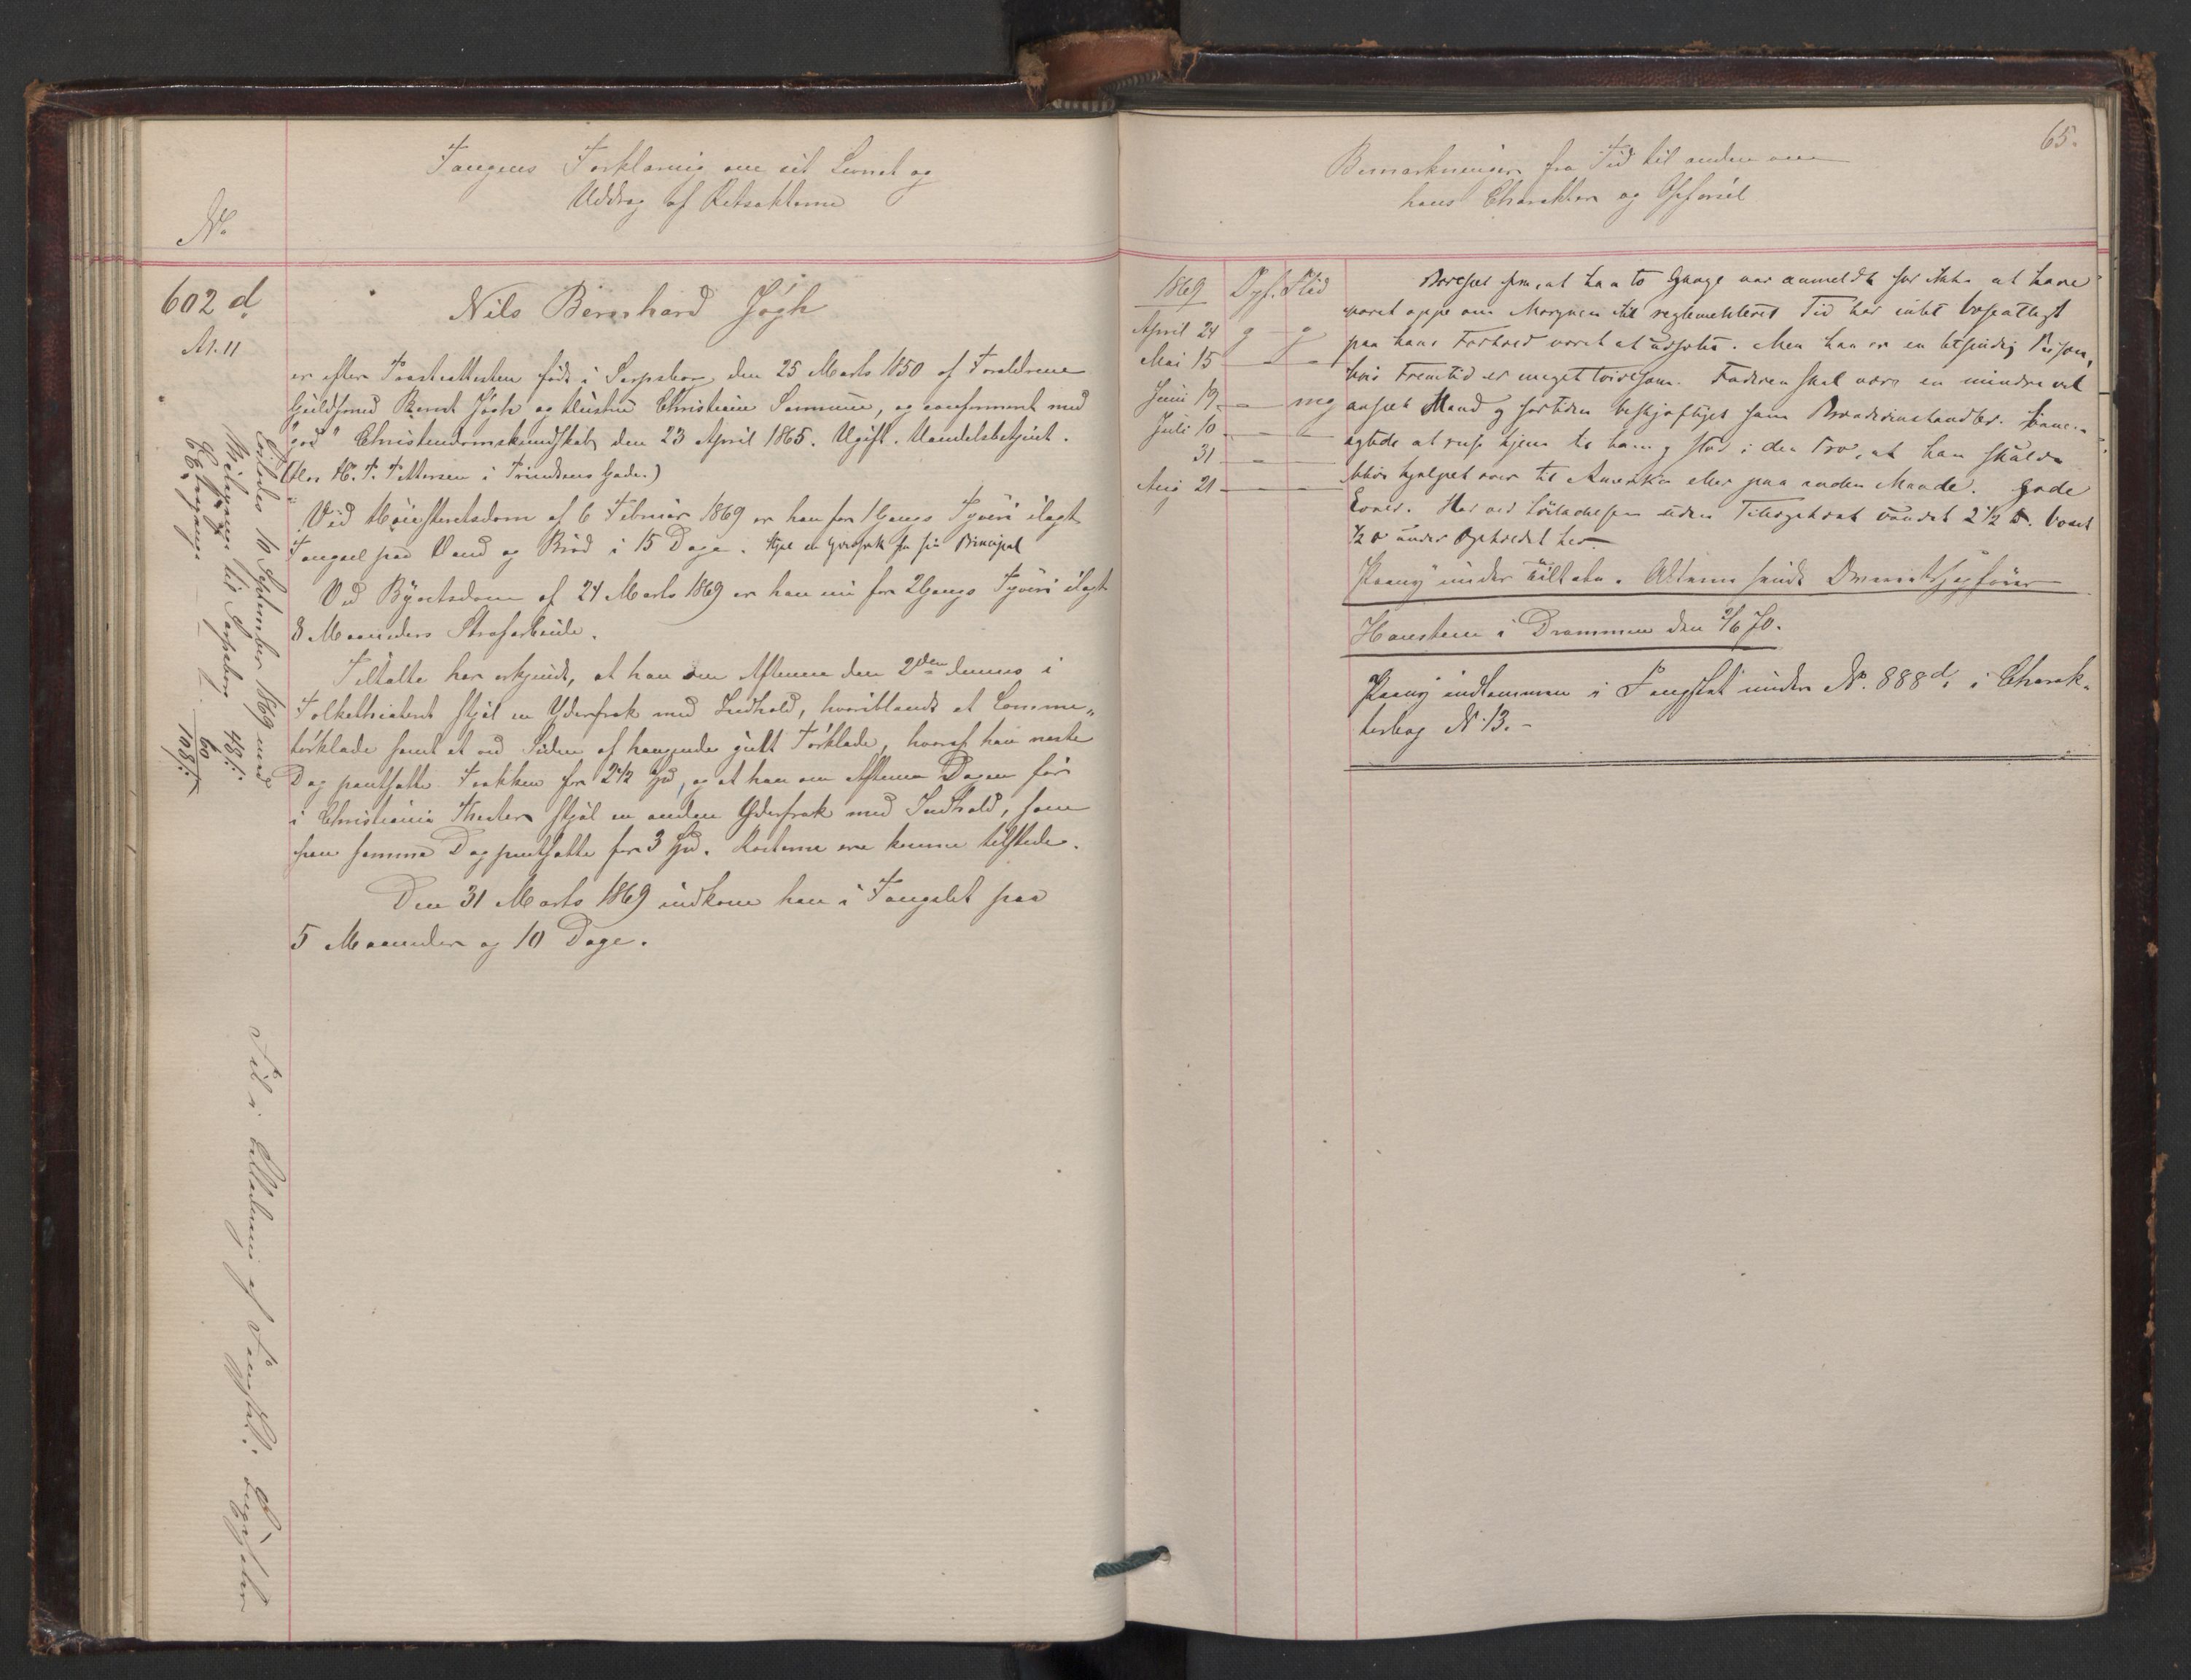 Fangens Forklaring om sit Levnet og
Uddrag af Retsakterne
No
602 d.
At. 11
Nils Bernhard Jøgh
er efter Præsteattesten født i Sarpsborg den 25 Marts 1850 af Forældrene
Guldsmed Bernt Jøgh og Hustru Christiane, og confirmeret med
"god" Christendomskundskab den 23 April 1865. Ugift. Handelsbetjent.
(Hos H. P. Pettersen i Gade.)
Ved Høiesteretsdom af 6 Februar 1869 er han for 1 Gangs Tyveri ilagt
Fængsel paa Vand og Brød i 15 Dage. Stjal en Yderfrak fra sin Principal
Ved Byretsdom af 24 Marts 1869 er han nu for 2 Gangs Tyveri ilagt
8 Maaneders Strafarbeide.
Tiltalte har erkjendt, at han om Aftenen den 2den dennes i
Folketheatret stjal en Yderfrak med Indhold, hvoriblandt et Lomme-
tørklæde samt et ved Siden af hængende gult Tørklæde, hvoraf han næste
Dag pantsatte Frakken for 2 1/2 Spd, og at han om Aftenen Dagen før
i Christiania Theater stjal en anden Yderfrak med Indhold, som
han samme Dag pantsatte for 3 Spd. Kosterne ere komne tilstede.
Den 31 Marts 1869 indkom han i Fængslet paa
5 Maaneder og 10 Dage.
Løslades 10 September 1869 med
til Sarpsborg 48 s:
60
108 s:
Fød i af Fængslet:
65.
Bemærkninger fra Tid til anden om
hans Charakter og Opførsel
1869 Opf. Flid
April 24 g g
Mai 15 — —
Juni 19 — mg
Juli 10 — —
31 — —
Aug 21 — —
at han to Gange var anmeldt for ikke at have
været oppe om Morgenen til reglementeret Tid har intet
paa hans Forhold været at udsætte. Men han er en letsindig Person,
hvis Fremtid er meget tvivlsom. Faderen skal være en mindre vel
anseet Mand og fortiden beskjæftiget som.
agtede at reise hjem til ham og stod i den Tro, at han skulde
blive hjulpet over til Amerika eller paa anden Maade. Gode
Evner. Har ved Løsladelsen uden vundet 2 1/2 ℔.
1/2 under Opholdet her.
Paany under Tiltale. Akterne sendt
i Drammen den 2/6 70.
Paany indkommen i Fængslet under No. 888 d. i Charak-
terbog No 13. -